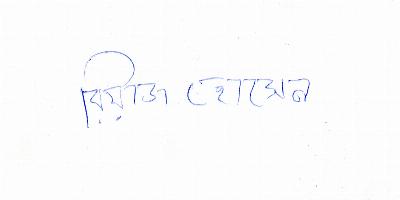 রিয়াজ হোসেন